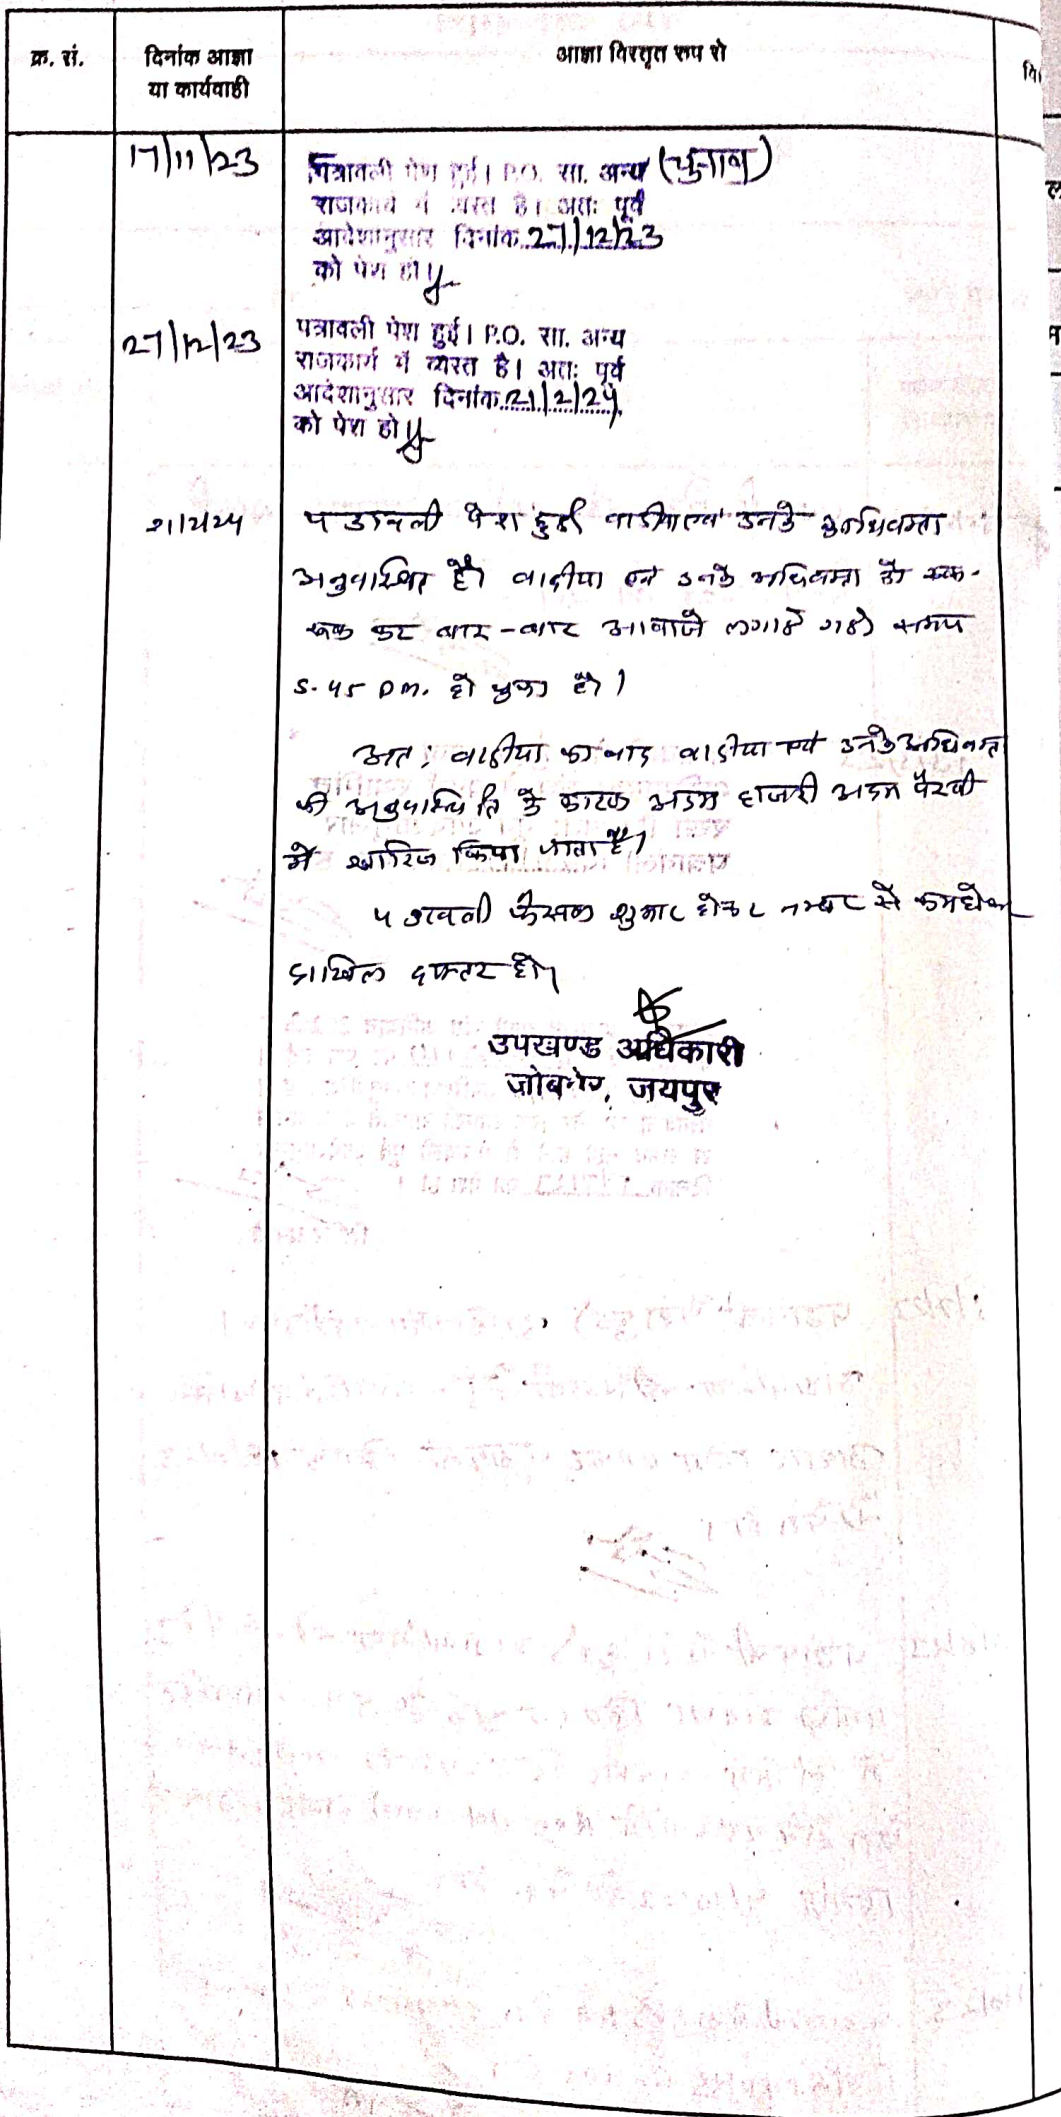 क्र. सं.
दिनांक आज्ञा
या कार्यवाही
आज्ञा विस्तृत रूप से
वि
17/11/23
पत्रावली पेश हुई। P.O. सा. अन्य (चुनाव)
राजकार्य में व्यस्त है। अतः पूर्व
आदेशानुसार दिनांक 27/12/23
को पेश हो।
27/12/23
पत्रावली पेश हुई। P.O. सा. अन्य
राजकार्य में व्यस्त है। अतः पूर्व
आदेशानुसार दिनांक 21/2/24
को पेश हो।
21/2/24
पत्रावली पेश हुई वादीया एवं उनके अधिवक्ता
अनुपस्थित है। वादीया एवं उनके अधिवक्ता को रूक-
रूक कर बार-बार आवाजे लगाई गई। समय
5.45 P.M. हो चुका है।
अतः वादीया का वाद वादीया एवं उनके अधिवक्ता
की अनुपस्थिति के कारण अदम हाजरी अदम पैरवी
में खारिज किया जाता है।
पत्रावली फैसल शुमार होकर नम्बर से कम होकर
दाखिल दफ्तर हो।
उपखण्ड अधिकारी
जोबनेर, जयपुर